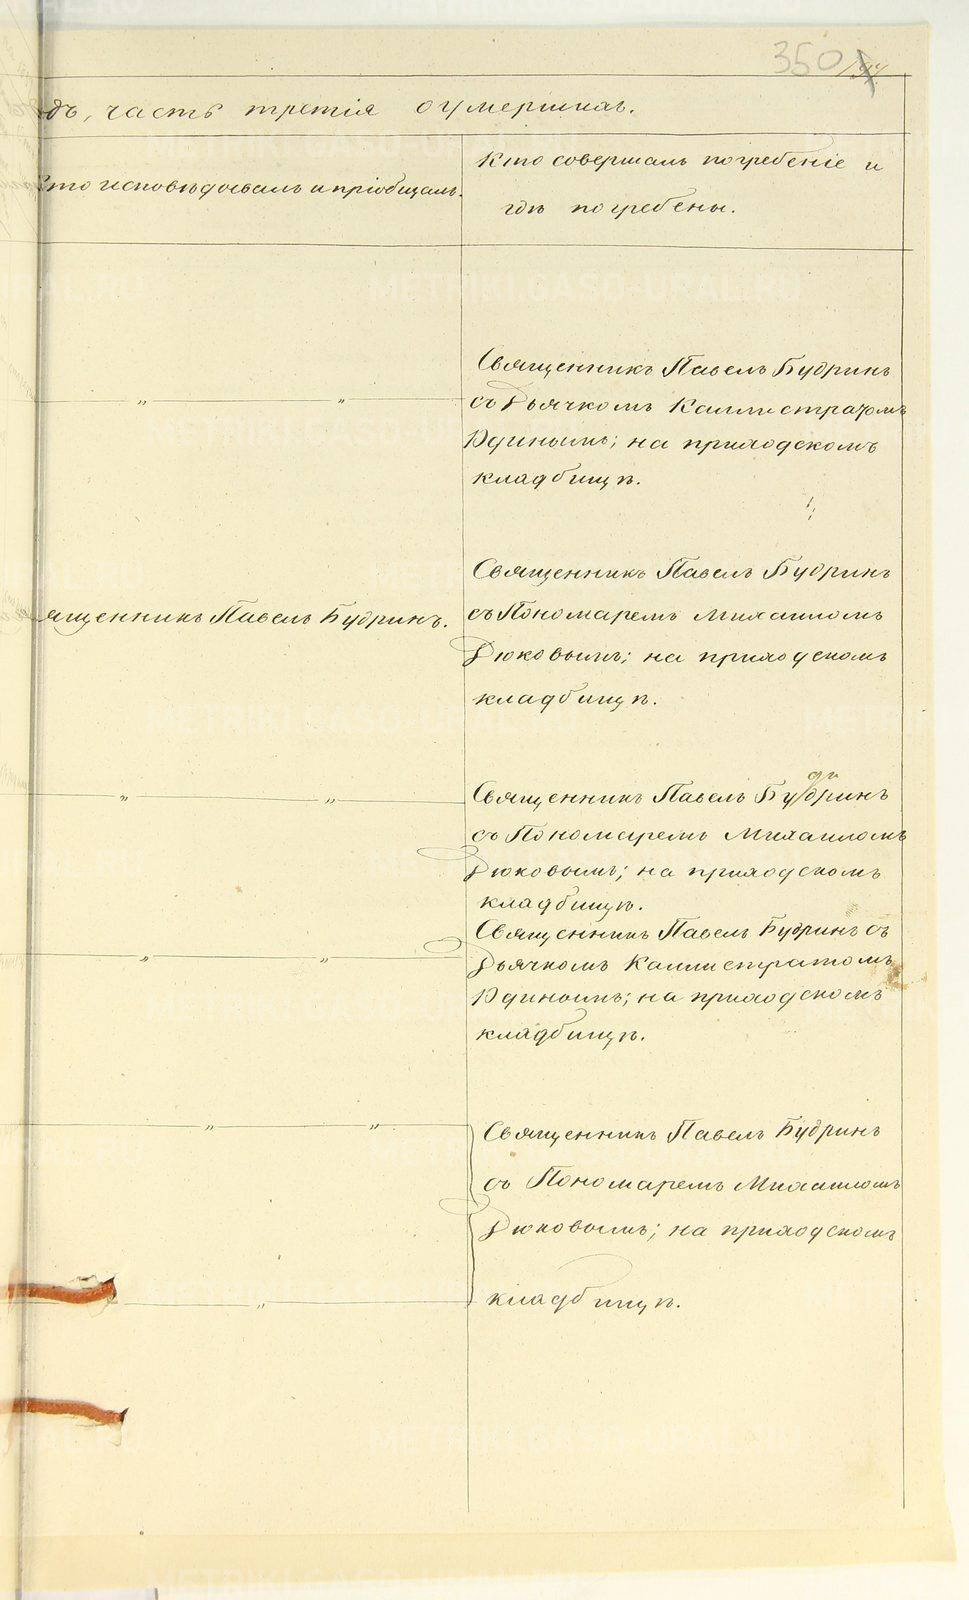 350
дъ, часть третія о умершихъ.
Кто исповѣдовалъ и пріобщалъ.
Кто совершалъ погребеніе и
гдѣ погребены.
Священникъ Павелъ Будринъ
съ Дьячкомъ Каллистратомъ
Удинымъ; на приходскомъ
кладбищѣ.
Священникъ Павелъ Будринъ
съ Пономаремъ Михаиломъ
ященникъ Павелъ Будринъ.
Дюковымъ; на приходскомъ
кладбищѣ.
Священникъ Павелъ Будринъ
съ Пономаремъ Михаиломъ
Дюковымъ; на приходскомъ
кладбищѣ.
Священникъ Павелъ Будринъ съ
Дьячкомъ Каллистратомъ
Удинымъ; на приходскомъ
кладбищѣ.
Священникъ Павелъ Будринъ
съ Пономаремъ Михаиломъ
Дюковымъ; на приходскомъ
кладбищѣ.
METRIKI.GASO-URAL.RU